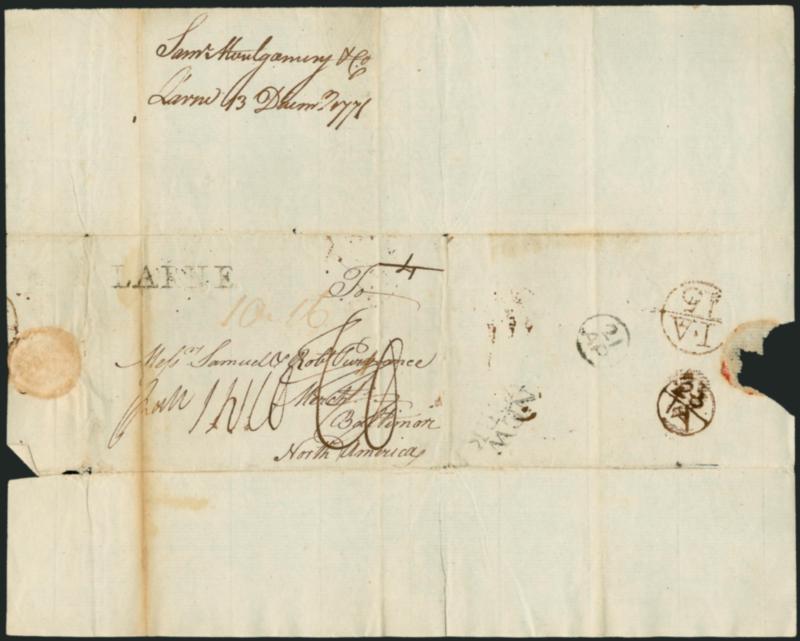 Sam.l Montgomery & Co
Larne 13 Decem.r 1771
LARNE
4
To
10.16
Mess.rs Samuel & Rob.t Purviance
Merch.ts
Baltimore
North America
NEW
YORK
21
AP